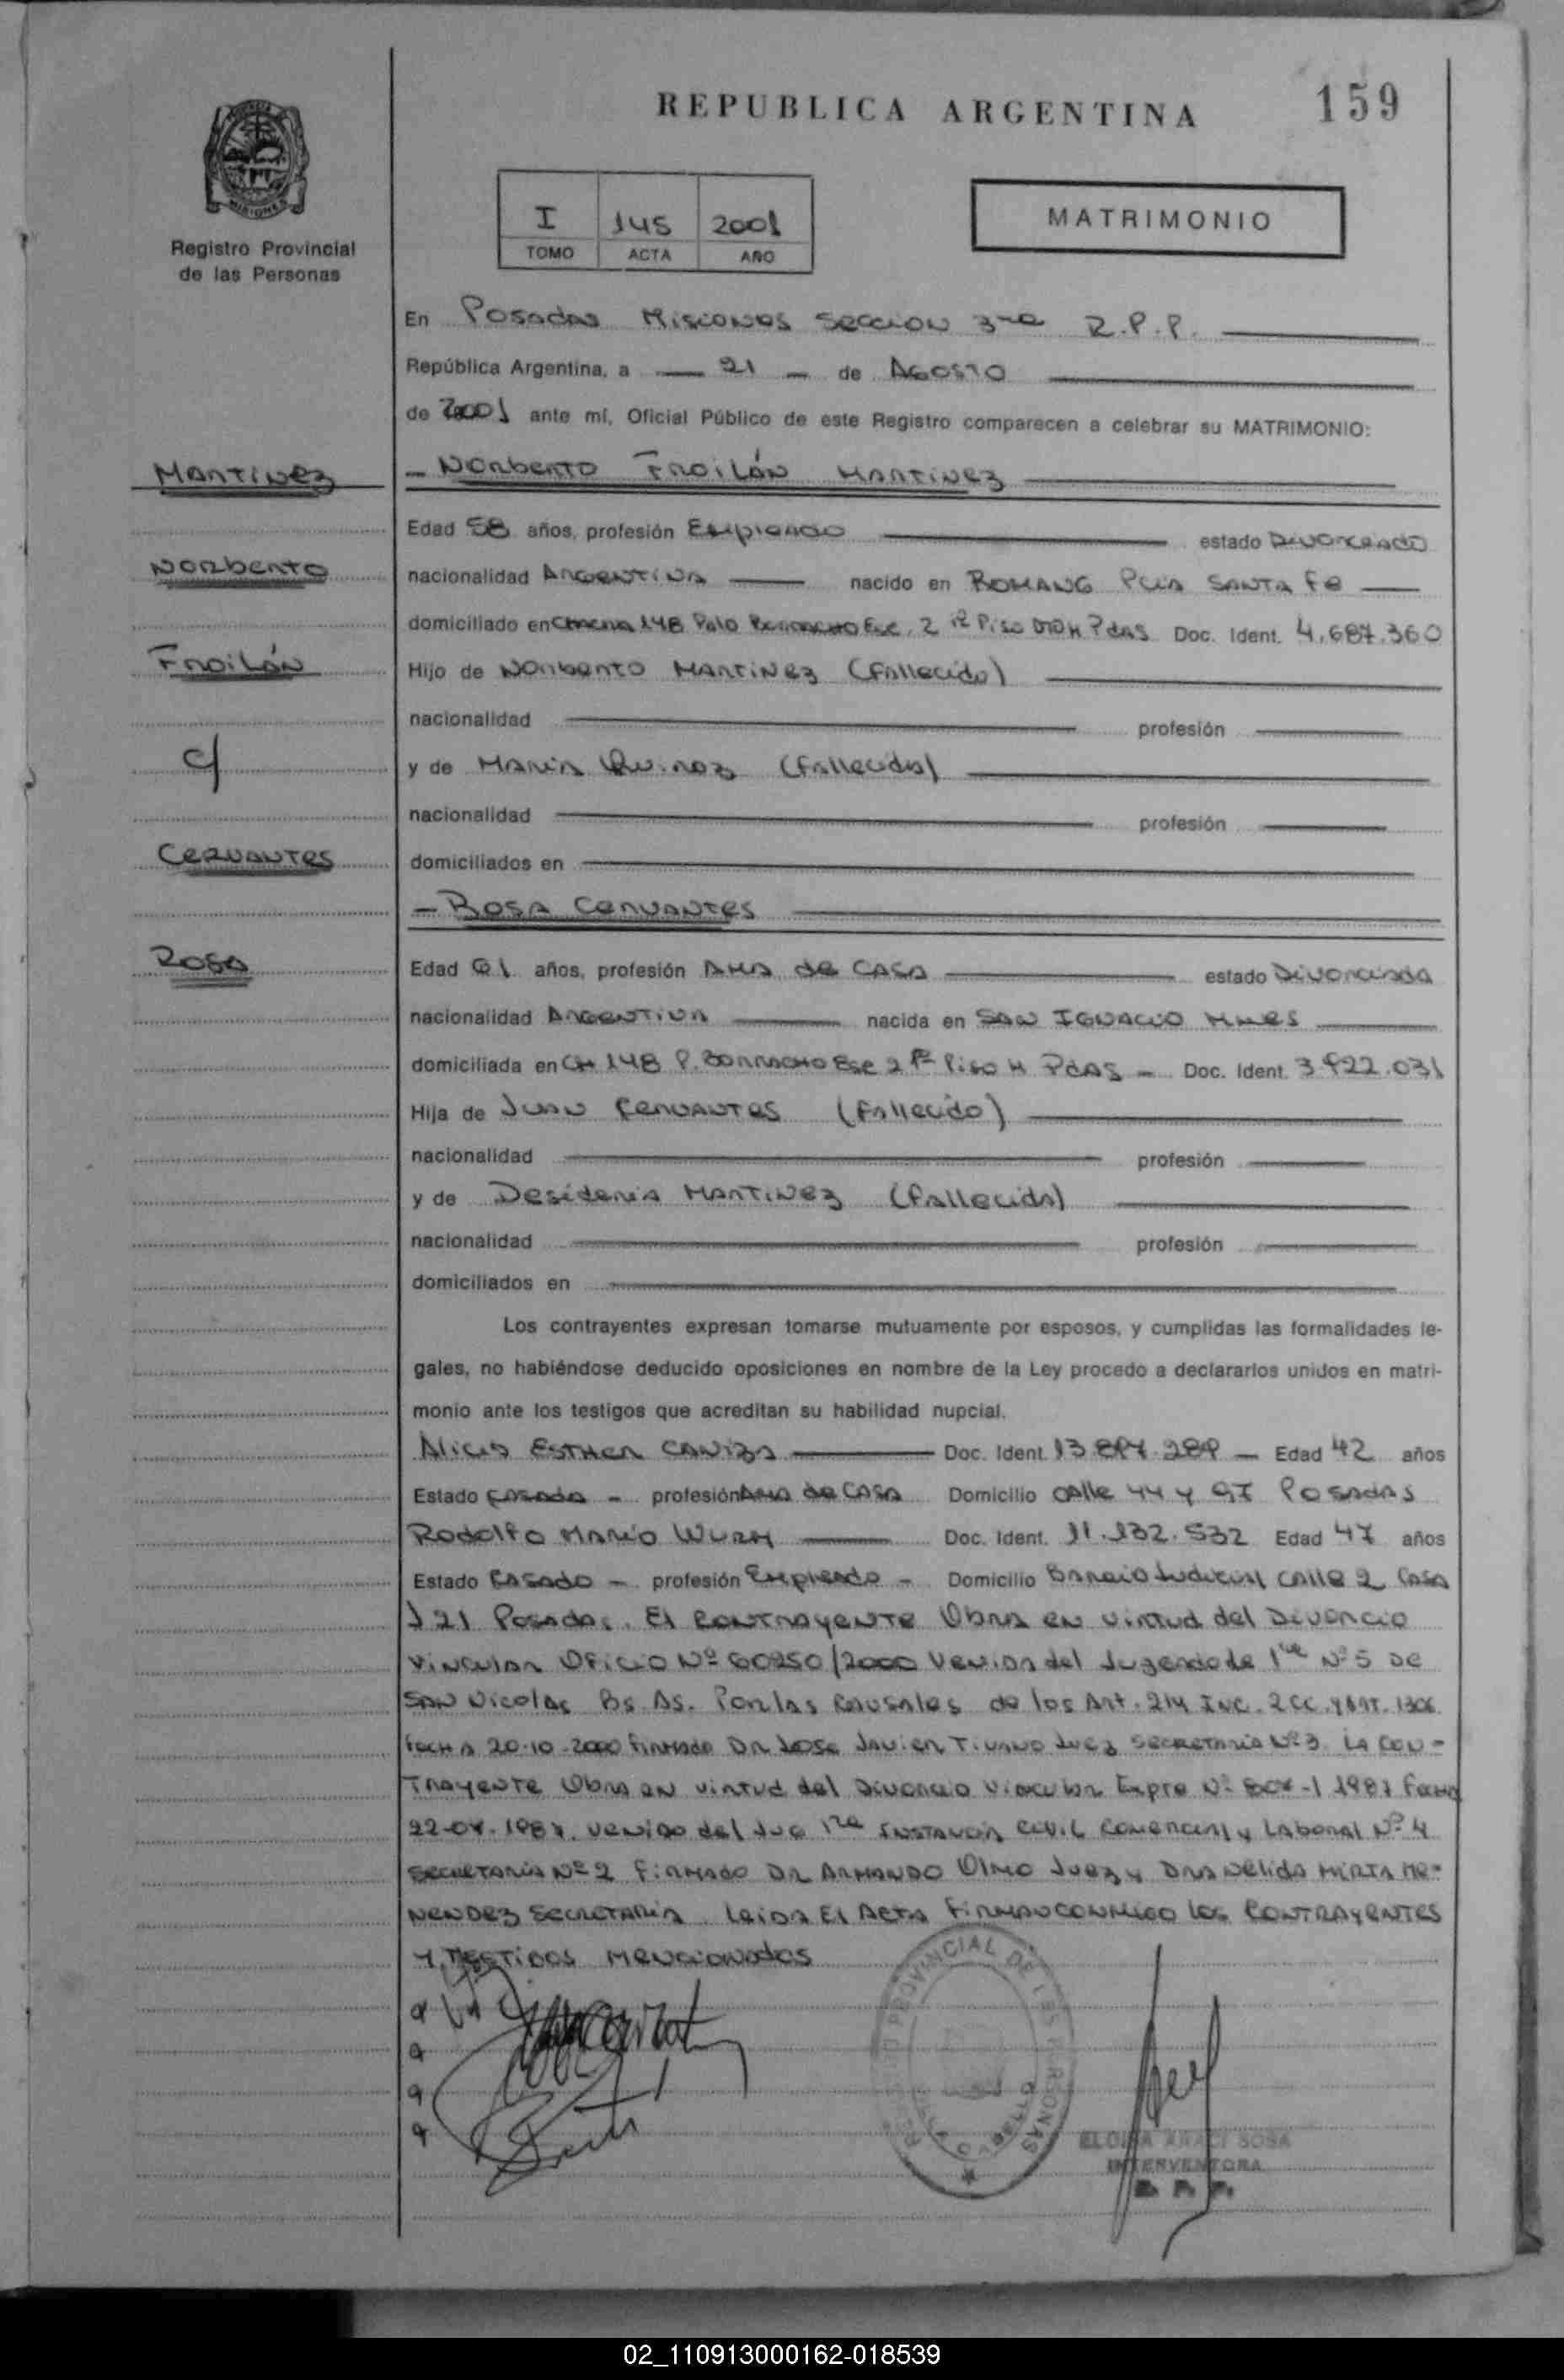 REPUBLICA ARGENTINA
159
Registro Provincial
de las Personas
I 145 2001
TOMO ACTA AÑO
MATRIMONIO
En Posadas Misiones Seccion 3ra R.P.P.
República Argentina, a 21 de Agosto
de 2001 ante mí, Oficial Público de este Registro comparecen a celebrar su MATRIMONIO:
Martinez
Norberto
Froilán
c/
Cervantes
Rosa
- Norberto Froilán Martinez
Edad 58 años, profesión Empleado estado Divorciado
nacionalidad Argentina nacido en Romang Pcia Santa Fe
domiciliado en Chacra 148 Palo Borracho Esc. 2 Piso Dto H Pdas Doc. Ident. 4.687.360
Hijo de Norberto Martinez (Fallecido)
nacionalidad profesión
y de Maria Quiroz (Fallecida)
nacionalidad profesión
domiciliados en
- Rosa Cervantes
Edad 61 años, profesión Ama de Casa estado Divorciada
nacionalidad Argentina nacida en San Ignacio Mnes
domiciliada en CH 148 P. Borracho Esc 2 Piso H Pdas - Doc. Ident. 3.922.031
Hija de Juan Cervantes (Fallecido)
nacionalidad profesión
y de Desideria Martinez (Fallecida)
nacionalidad profesión
domiciliados en
Los contrayentes expresan tomarse mutuamente por esposos, y cumplidas las formalidades le-
gales, no habiéndose deducido oposiciones en nombre de la Ley procedo a declararlos unidos en matri-
monio ante los testigos que acreditan su habilidad nupcial.
Alicia Esther Caniza Doc. Ident. Edad 42 años
Estado Casada - profesión Ama de Casa Domicilio Calle 44 y Posadas
Rodolfo Mario Wurm Doc. Ident. 11.132.532 Edad 47 años
Estado Casado - profesión Empleado - Domicilio Barrio Judicial Calle 2 Casa
121 Posadas. El Contrayente Obra en virtud del Divorcio
Vincular Oficio Nº 60250/2000 Venida del Juzgado de 1ra Nº 5 de
San Nicolas Bs. As. Por las Causales de los Art. 214 Inc. 2 CC. y Art. 1306
fecha 20-10-2000 Firmado Dr Jose Javier Tivano Juez Secretaria Nº 3. La Con-
trayente Obra en virtud del Divorcio Vincular Expte Nº 1987 Fecha
venido del Juz 1ra Instancia Civil Comercial y Laboral Nº 4
Secretaria Nº 2 Firmado Dr Armando Olmo Juez y Dra Nelida Mirta Me-
nendez Secretaria. Leida El Acta Firman conmigo los Contrayentes
y Testigos Mencionados
REGISTRO PROVINCIAL DE LAS PERSONAS
ELOISA ARACI SOSA
INTERVENTORA
R. P. P.
02_110913000162-018539